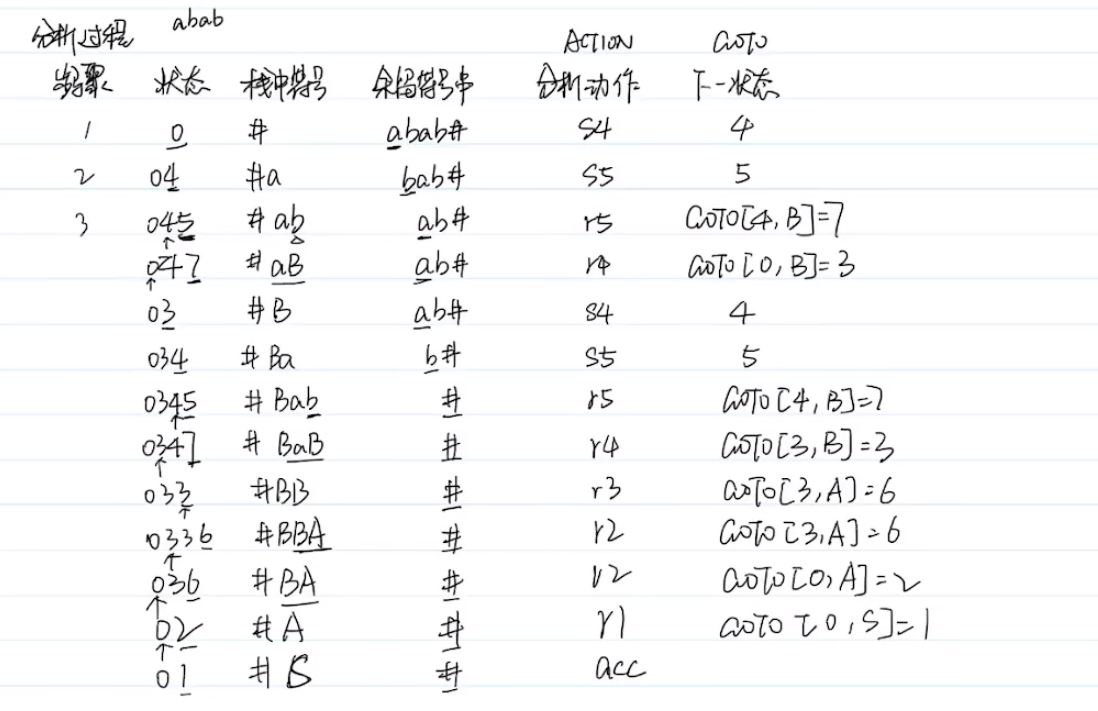 分析过程 abab
ACTION GOTO
步骤 状态 栈中符号 余留符号串 分析动作 下一状态
1 0 # abab# S4 4
2 04 #a bab# S5 5
3 045 #ab ab# r5 GOTO[4,B]=7
047 #aB ab# r4 GOTO[0,B]=3
03 #B ab# S4 4
034 #Ba b# S5 5
0345 #Bab # r5 GOTO[4,B]=7
0347 #BaB # r4 GOTO[3,B]=3
033 #BB # r3 GOTO[3,A]=6
0336 #BBA # r2 GOTO[3,A]=6
036 #BA # r2 GOTO[0,A]=2
02 #A # r1 GOTO[0,S]=1
01 #S # acc